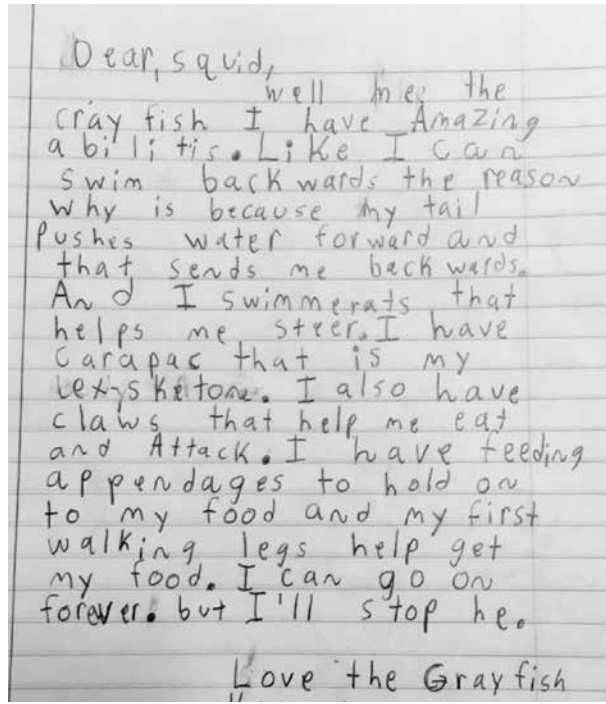 Dear, squid,
well me the
cray fish I have Amazing
abilitis. Like I can
swim backwards the reason
why is because my tail
Pushes water forward and
that sends me backwards.
And I swimmerats that
helps me steer. I have
carapac that is my
I also have
claws that help me eat
and Attack. I have feeding
appendages to hold on
to my food and my first
walking legs help get
my food. I can go on
forever. but I'll stop he.
Love the Grayfish